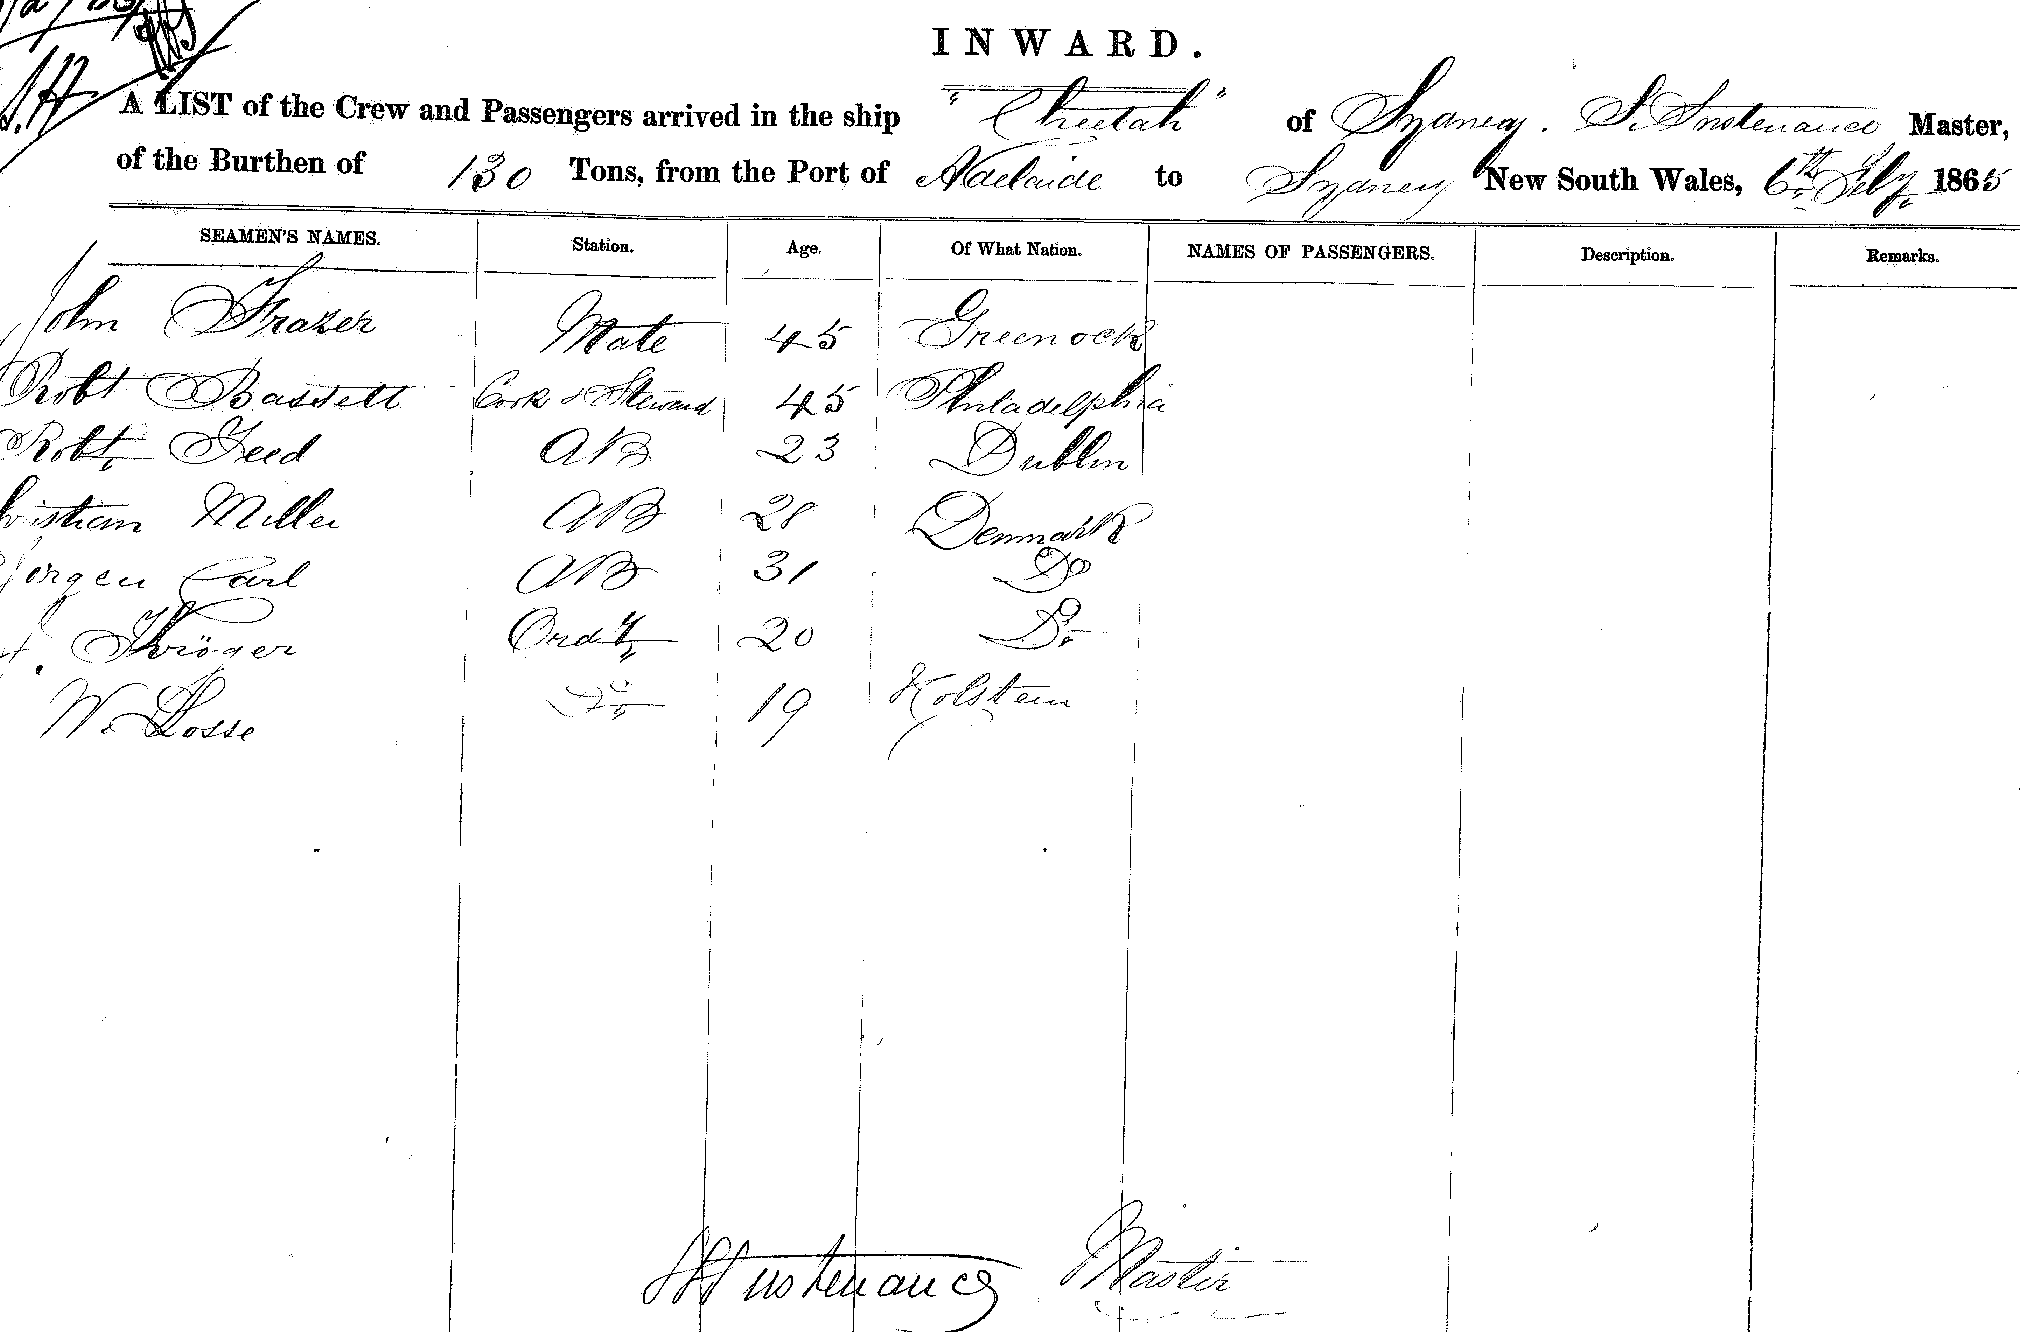 INWARD.
A LIST of the Crew and Passengers arrived in the ship "Cheetah" of Sydney. S. Sustenance Master,
of the Burthen of 130 Tons, from the Port of Adelaide to Sydney New South Wales, 6th Feby. 1865
SEAMEN'S NAMES. Station. Age. Of What Nation. NAMES OF PASSENGERS. Description. Remarks.
John Frazer Mate 45 Greenock
Robt Bassett Cook & Steward 45 Philadelphia
Robt. Feed AB 23 Dublin
hristian Miller AB 28 Denmark
Jorgen Carl AB 31 Do
Kröger Ordy 20 Do.
W. Losse Do 19 Holstein
Sustenance Master